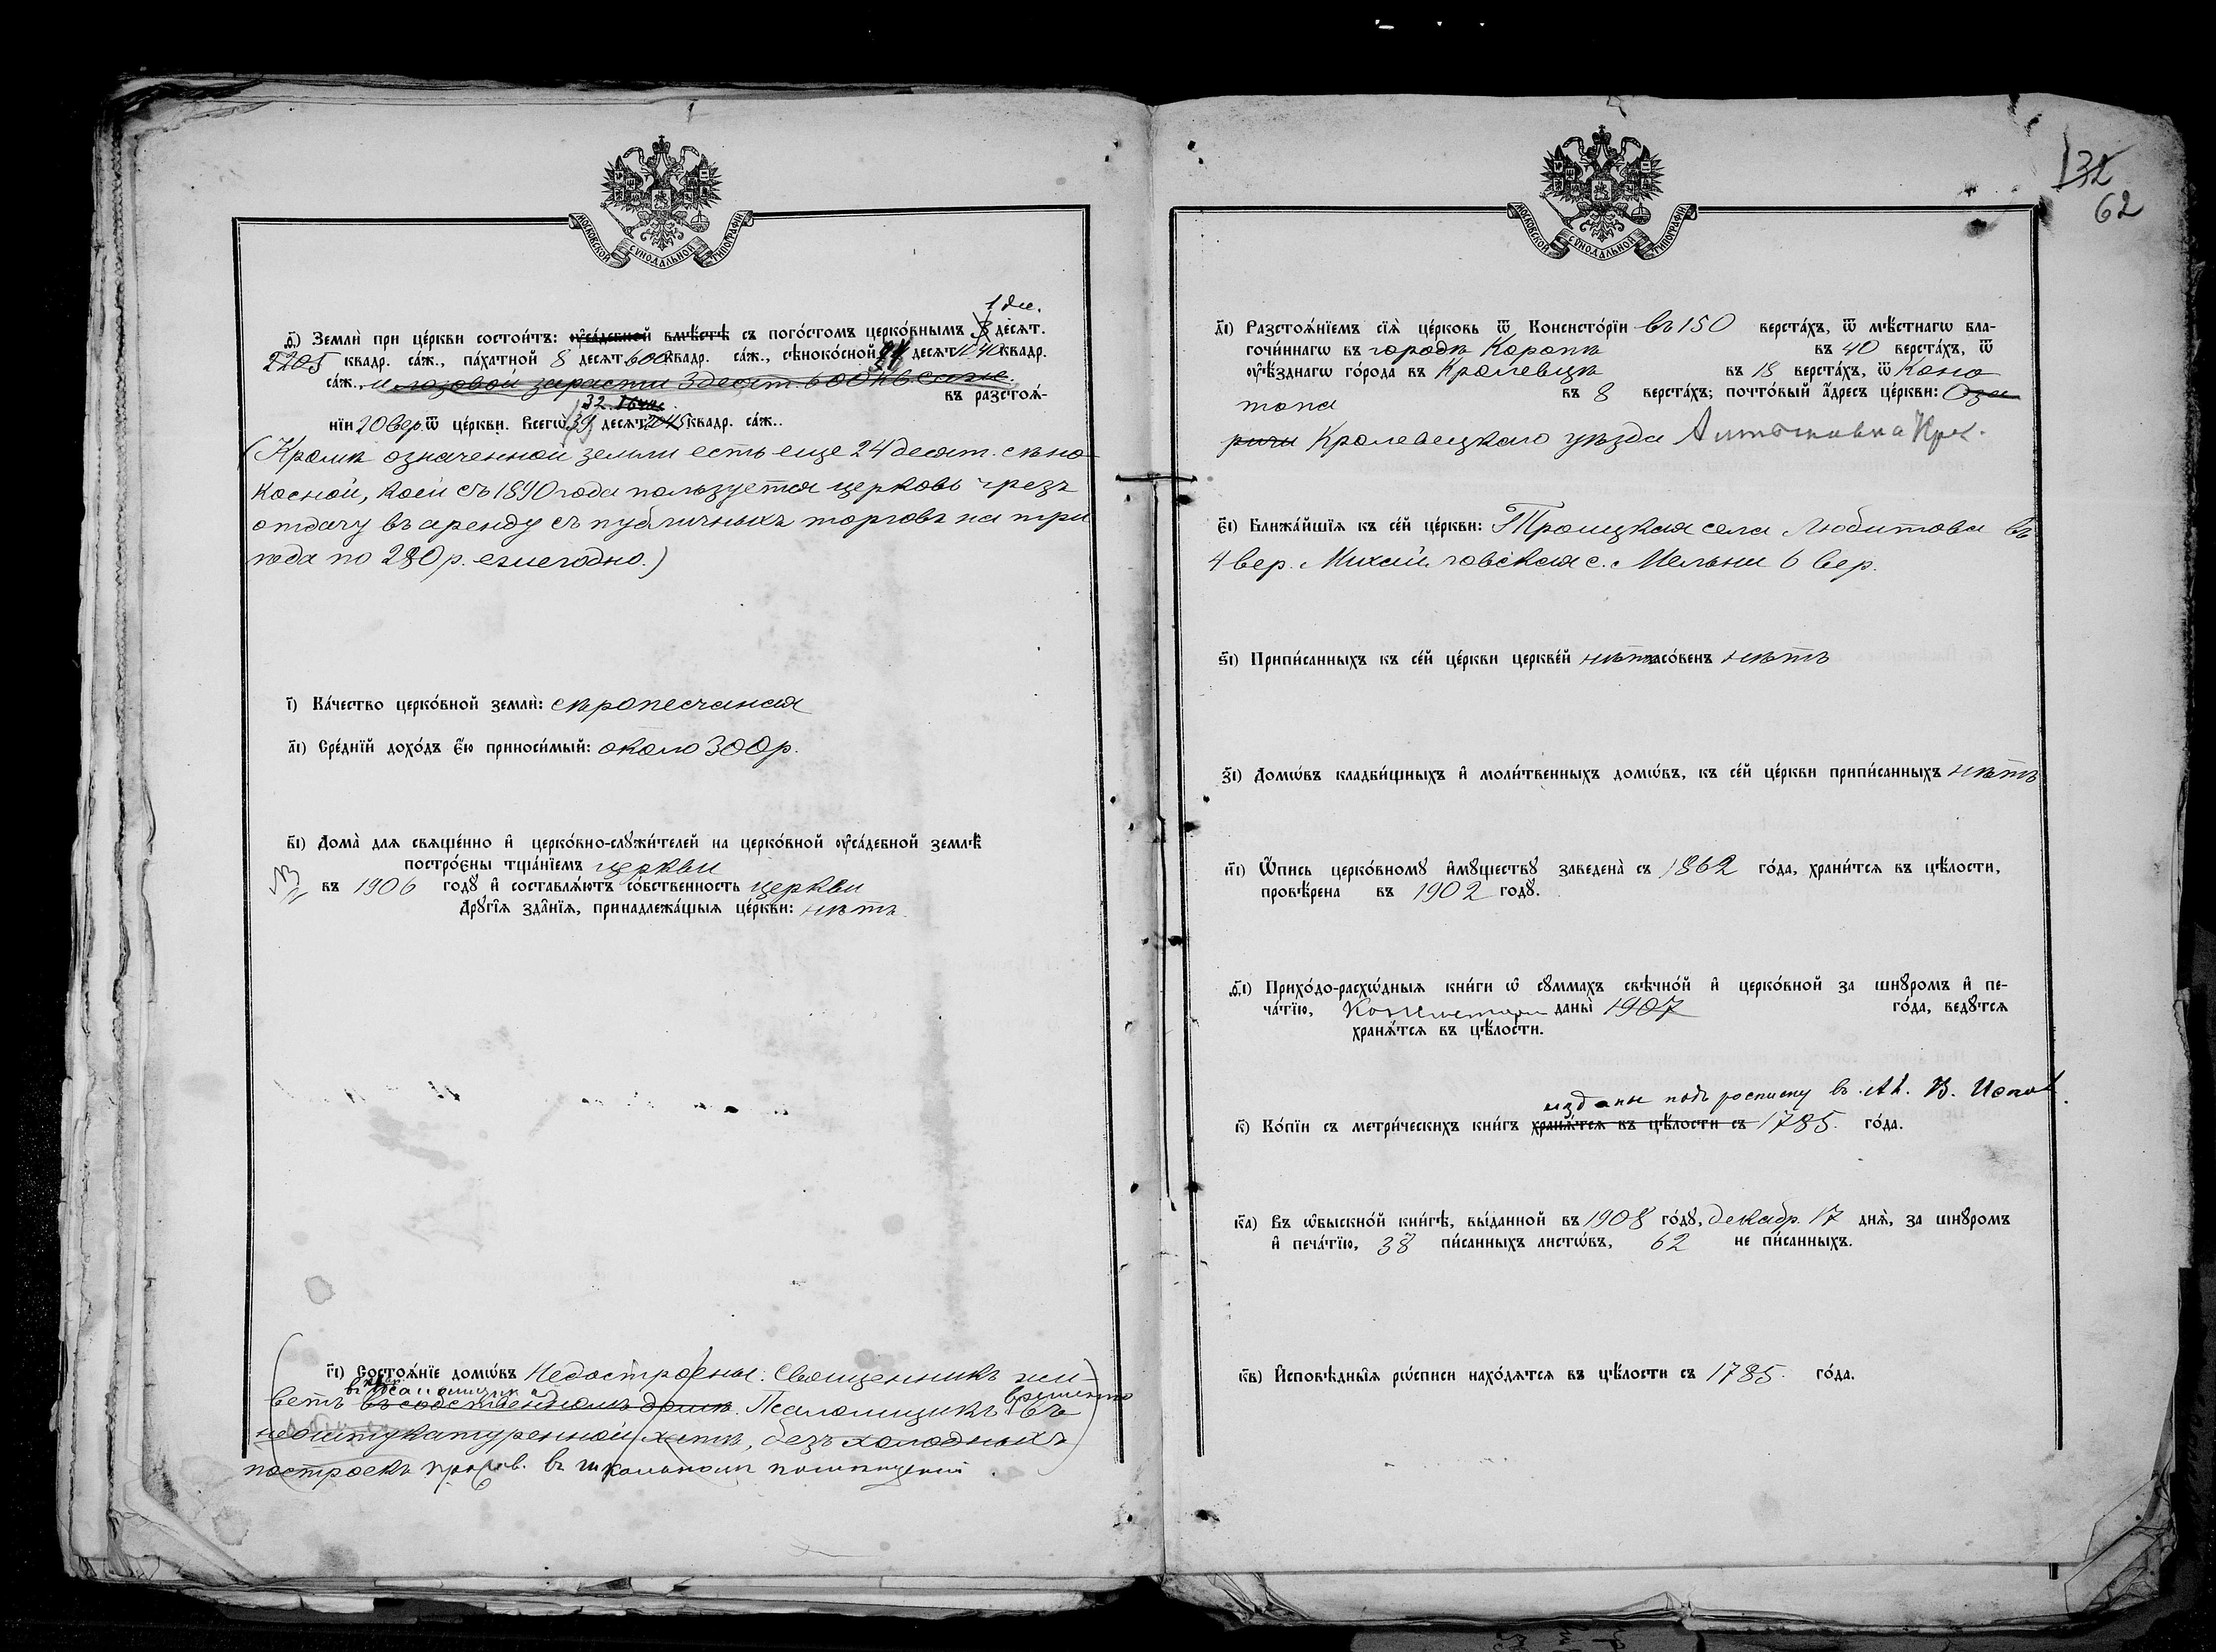 МОСКОВСКОЙ СѴНОДАЛЬНОЙ ТИПОГРАФІИ
1 дес.
ѳ҃) Землѝ при це́ркви состои́тъ: ᲂу҆са́дебной вмѣ́стѣ съ пого́стомъ церко́внымъ десѧт.
2205 квадр. са́ж., па́хатной 8 десѧт 600 квадр. са́ж., сѣноко́сной десѧт 1040 квадр.
са́ж., и лозовой зарасти 3 десят. 600 кв. саж.
въ разстоѧ́-
32
нїи 20 вер. ѿ це́ркви. Всегѡ̀ 39 десѧт 2045 квадр. са́ж..
(Кромѣ означенной земли есть еще 24 десят. сѣно-
косной, коей съ 1890 года пользуется церковь чрезъ
отдачу въ аренду съ публичныхъ торговъ на три
года по 280 р. ежегодно.)
і҃) Ка́чество церко́вной землѝ: сѣропесчаная
а҃і) Сре́днїй дохо́дъ є҆́ю приноси́мый: около 300 р.
в҃і) Дома̀ для свѧще́нно и҆ церко́вно-слꙋжи́телей на церко́вной ᲂу҆са́дебной землѣ̀
постро́єны тща́нїемъ церкви
въ 1906 годꙋ̀ и҆ составлѧ́ютъ со́бственность церкви
Дрꙋгі̑ѧ зда̑нїѧ, принадлежа́щыѧ це́ркви: нѣтъ.
г҃і) Состоѧ́нїе домѡ́въ Недостроены. Священникъ жи-
ветъ въ собственномъ домѣ. Псаломщикъ временно въ
неоштукатуренной хатѣ, безъ холодныхъ
построекъ в школьномъ помѣщеніи.
132
62
МОСКОВСКОЙ СѴНОДАЛЬНОЙ ТИПОГРАФІИ
д҃і) Разстоѧ́нїемъ сїѧ̀ це́рковь ѿ Консисто́рїи въ 150 верста́хъ, ѿ мѣ́стнагѡ бла-
гочи́ннагѡ въ городѣ Коропѣ въ 40 верста́хъ, ѿ
ᲂу҆ѣ́зднагѡ го́рода въ Кролевцѣ въ 18 верста́хъ, ѿ Коно
топа въ 8 верста́хъ; почто́вый а҆́дресъ це́ркви: Оза
ричи Кролевецкаго уѣзда Алтыновка Крол.
є҃і) Ближа́йшїѧ къ се́й це́ркви: Троицкая села Любитова въ
4 вер. Михайловская с. Мельни 6 вер.
ѕ҃і) Припи́санныхъ къ се́й це́ркви церкве́й нѣтъ часо́венъ нѣтъ
з҃і) Домѡ́въ кладби́щныхъ и҆ моли́твенныхъ домѡ́въ, къ се́й це́ркви припи́санныхъ нѣтъ
и҃і) Ѻ҆́пись церко́вномꙋ и҆мꙋ́ществꙋ заведена̀ съ 1862 го́да, храни́тсѧ въ цѣ́лости,
провѣ́рена въ 1902 годꙋ̀.
ѳ҃і) Прихо́до-расхѡ́дныѧ кни́ги ѡ҆ сꙋ́ммахъ свѣчно́й и҆ церко́вной за шнꙋро́мъ и҆ пе-
ча́тїю, Консистории даны̀ 1907 го́да, ведꙋ́тсѧ
хранѧ́тсѧ въ цѣ́лости.
изданы подъ росписку въ
к҃) Ко́пїи съ метри́ческихъ кни́гъ хранѧ́тсѧ въ цѣ́лости съ 1785. го́да.
к҃а) Въ ѡ҆быскно́й кни́гѣ, вы́данной въ 1908 го́дꙋ, декабр. 17 днѧ̀, за шнꙋро́мъ
и҆ печа́тїю, 38 пи́санныхъ листѡ́въ, 62 не пи́санныхъ.
к҃в) И҆сповѣ̑дныѧ рѡ́списи нахо́дѧтсѧ въ цѣ́лости съ 1785. го́да.